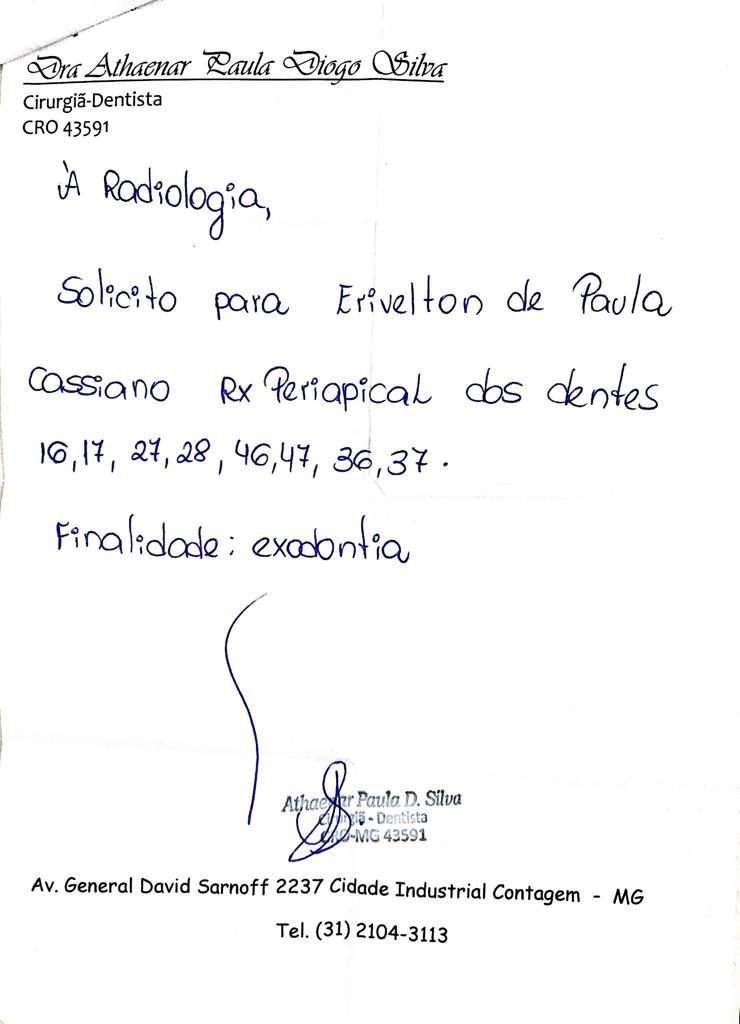 Dra Athaenar Paula Diogo Silva
Cirurgiã-Dentista
CRO 43591
À Radiologia,
Solicito para Erivelton de Paula
Cassiano Rx Periapical dos dentes
16,17, 27,28, 46,47, 36,37.
Finalidade: exodontia
Athaenar Paula D. Silva
Cirurgiã - Dentista
CRO-MG 43591
Av. General David Sarnoff 2237 Cidade Industrial Contagem - MG
Tel. (31) 2104-3113